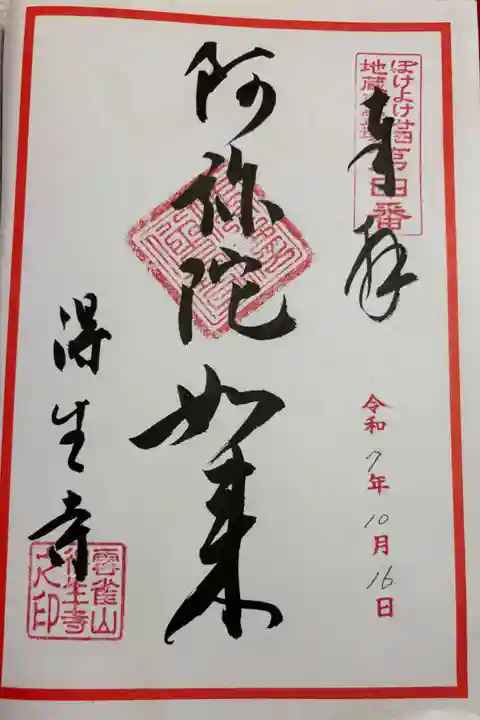 奉拝
ぽけよけ
地蔵
番
令和7年10月16日
阿弥陀如来
得生寺
雲雀山
得生寺
之印